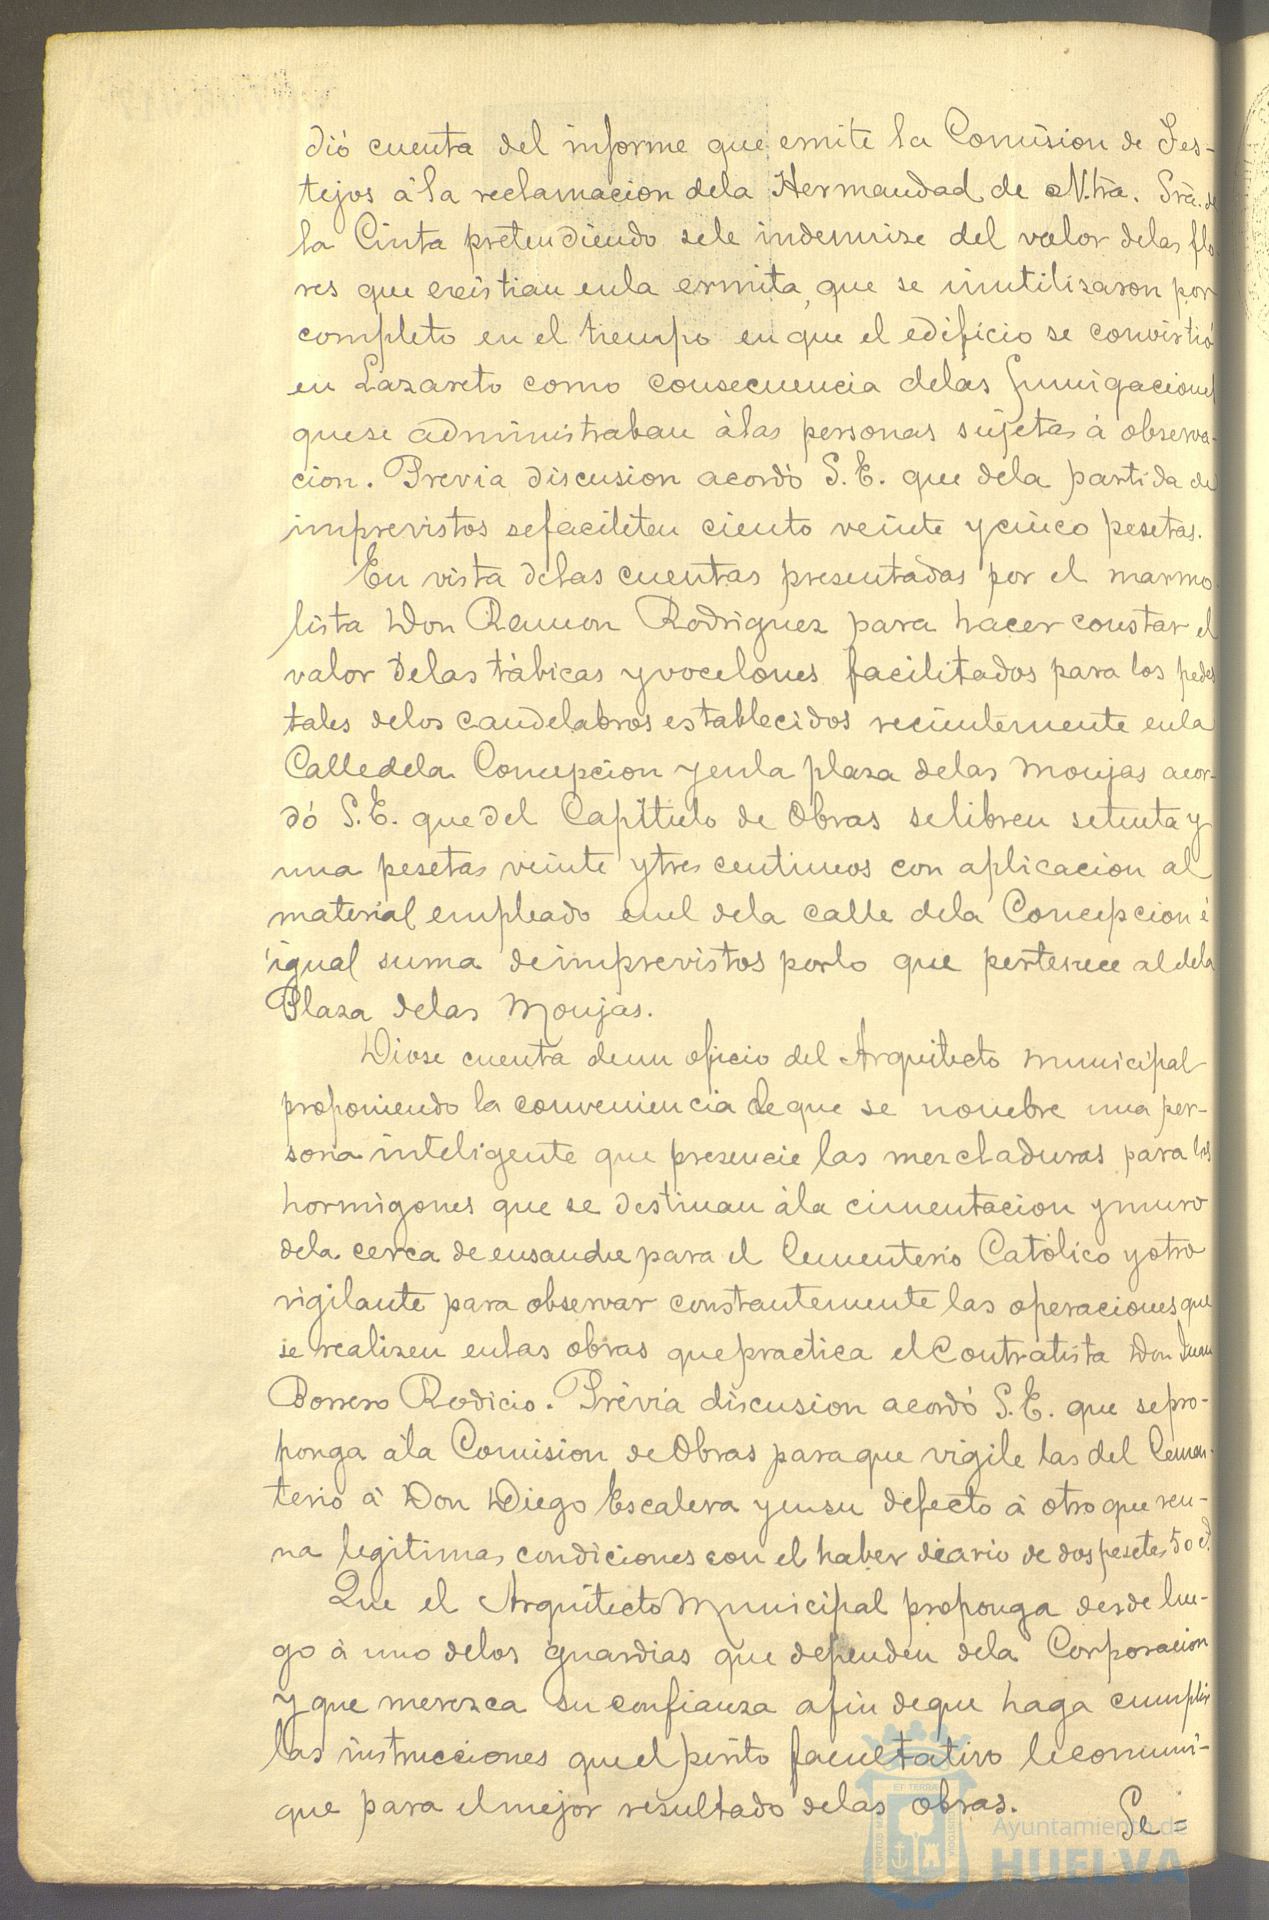 dió cuenta del informe que emite la Comision de Fes-
tejos á la reclamacion dela Hermandad de Ntra. Sra. de
la Cinta pretendiendo sele indemnise del valor delas flo-
res que existian enla ermita, que se inutilizaron por
completo en el tiempo en que el edificio se convirtió
en Lazareto como consecuencia delas fumigaciones
quese administraban álas personas sujetas á observa-
cion. Prévia discusion acordó S. E. que dela partida de
imprevistos sefaciliten ciento veinte y cinco pesetas.
En vista delas cuentas presentadas por el marmo-
lista Don Ramon Rodriguez para hacer constar el
valor delas tábicas y vocelones facilitados para los pedes
tales delos candelabros establecidos recientemente enla
Calledela Concepcion y enla plaza delas Monjas acor-
dó S. E. que del Capítulo de Obras selibren setenta y
una pesetas veinte y tres centimos con aplicacion al
material empleado enel dela calle dela Concepcion é
igual suma deimprevistos porlo que pertenece al dela
Plaza delas Monjas.
Diose cuenta deun oficio del Arquitecto municipal
proponiendo la conveniencia de que se nombre una per-
sona inteligente que presencie las mezcladuras para los
hormigones que se destinan ála cimentacion y muro
dela cerca de ensanche para el Cementerio Católico y otro
vigilante para observar constantemente las operaciones que
se realizen enlas obras que practica el Contratista Don Juan
Borrero Rodicio. Prévia discusion acordó S. E. que sepro-
ponga ála Comision de Obras para que vigile las del Cemen-
terio á Don Diego Escalera y ensu defecto á otro que reu-
na legitimas condiciones con el haber diario de dos pesetas 50 cs.
Que el Arquitecto Municipal proponga desde lue-
go á uno delos guardias que dependen dela Corporacion
y que merezca su confianza afin deque haga cumplir
las instrucciones que el perito facultativo lecomuni-
que para elmejor resultado delas obras.
Se=
ET TERRÆ
Ayuntamiento de
HUELVA